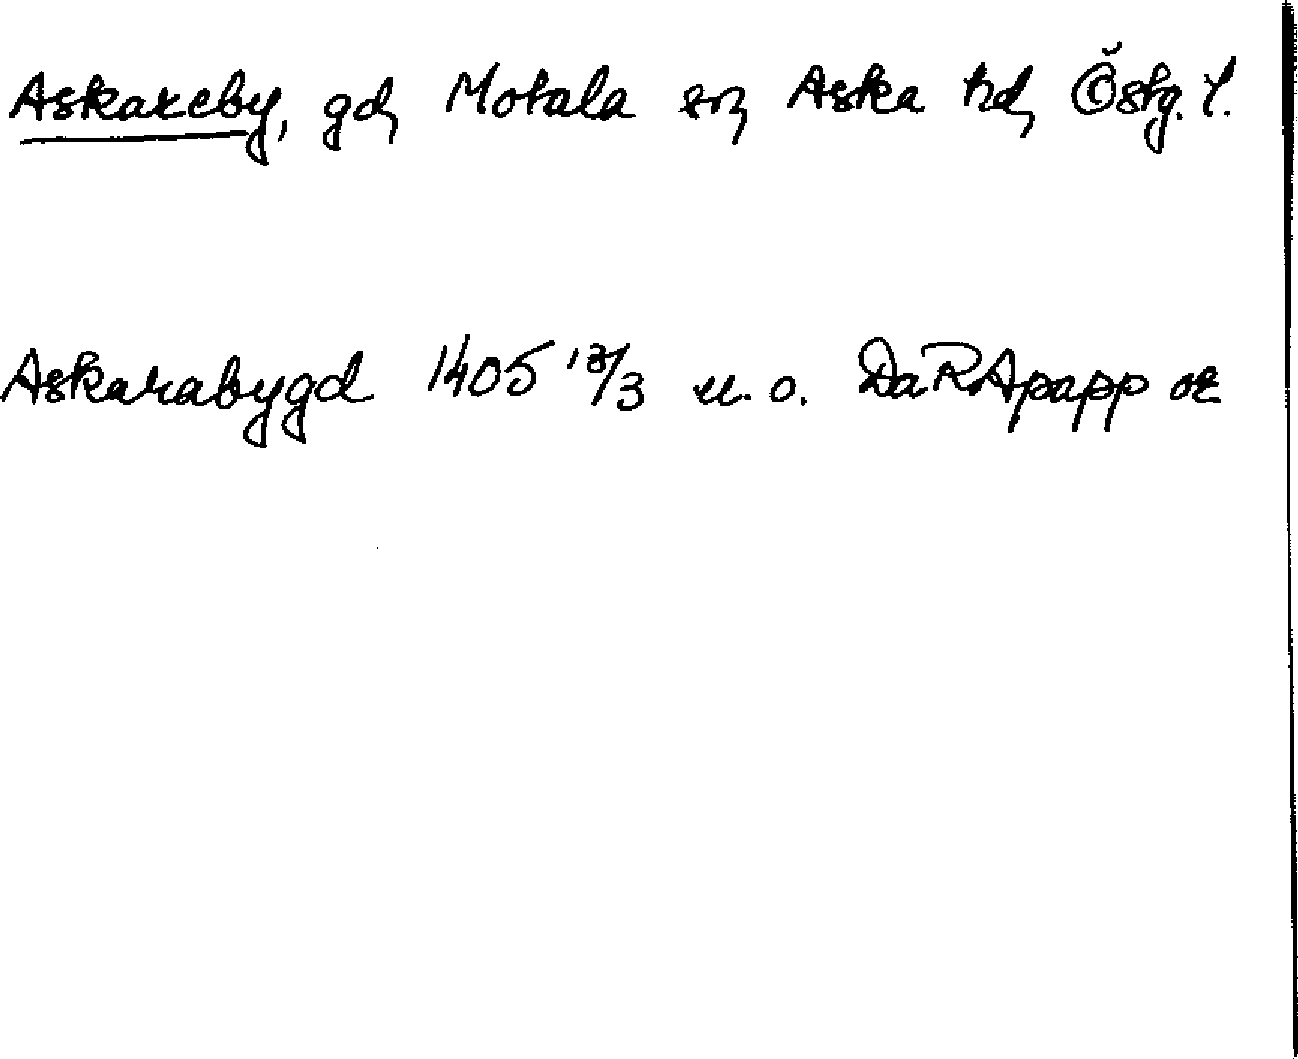 Askareby, gd, Motala sn, Aska hd, Östg. l.
Askarabygd 1405 13/3 u. o. DaRApapp or